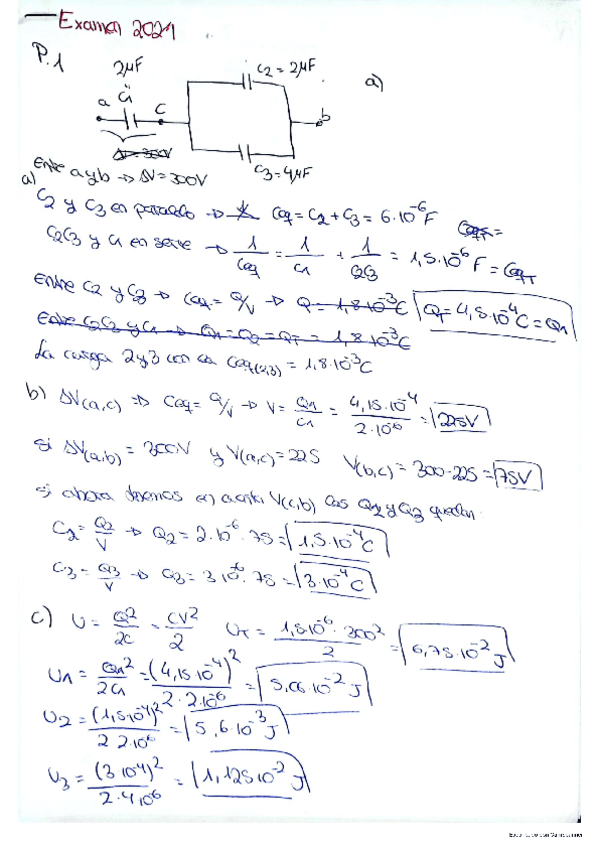 Examen 2021
P.1
2μF
C1
a
c
C2 = 2μF
b
C3 = 4μF
a)
ΔV = 300V
Entre a y b → ΔV = 300V
a)
C2 y C3 en paralelo → Ceq = C2 + C3 = 6·10⁻⁶ F
C2C3 y C1 en serie → 1/Ceq = 1/C1 + 1/C2C3 = 1,5·10⁻⁶ F = CeqT
Entre C2 y C3 → Ceq = Q/V → Q = 1,8·10⁻³C QT = 4,5·10⁻⁴C = Q1
Entre C2C3 y C1 → Q1 = Q2 = QT = 1,8·10⁻³C
La carga 2 y 3 con Ceq(2,3) = 1,8·10⁻³C
b) ΔV(a,c) ⇒ Ceq = Q/V → V = Q1/C1 = 4,15·10⁻⁴/2·10⁻⁶ = 225V
si ΔV(a,b) = 300V y V(a,c) = 225 V(b,c) = 300-225 = 75V
si ahora tenemos en cuenta V(c,b) las Q2 y Q3 quedan:
C2 = Q2/V → Q2 = 2·10⁻⁶·75 = 1,5·10⁻⁴C
C3 = Q3/V → Q3 = 3·10⁻⁶·75 = 3·10⁻⁴C
c) U = Q²/2C = CV²/2 UT = 1,5·10⁻⁶·300²/2 = 6,75·10⁻² J
U1 = Q1²/2C1 = (4,15·10⁻⁴)²/2·2·10⁻⁶ = 5,06·10⁻² J
U2 = (1,5·10⁻⁴)²/2·2·10⁻⁶ = 5,6·10⁻³ J
U3 = (3·10⁻⁴)²/2·4·10⁻⁶ = 1,125·10⁻² J